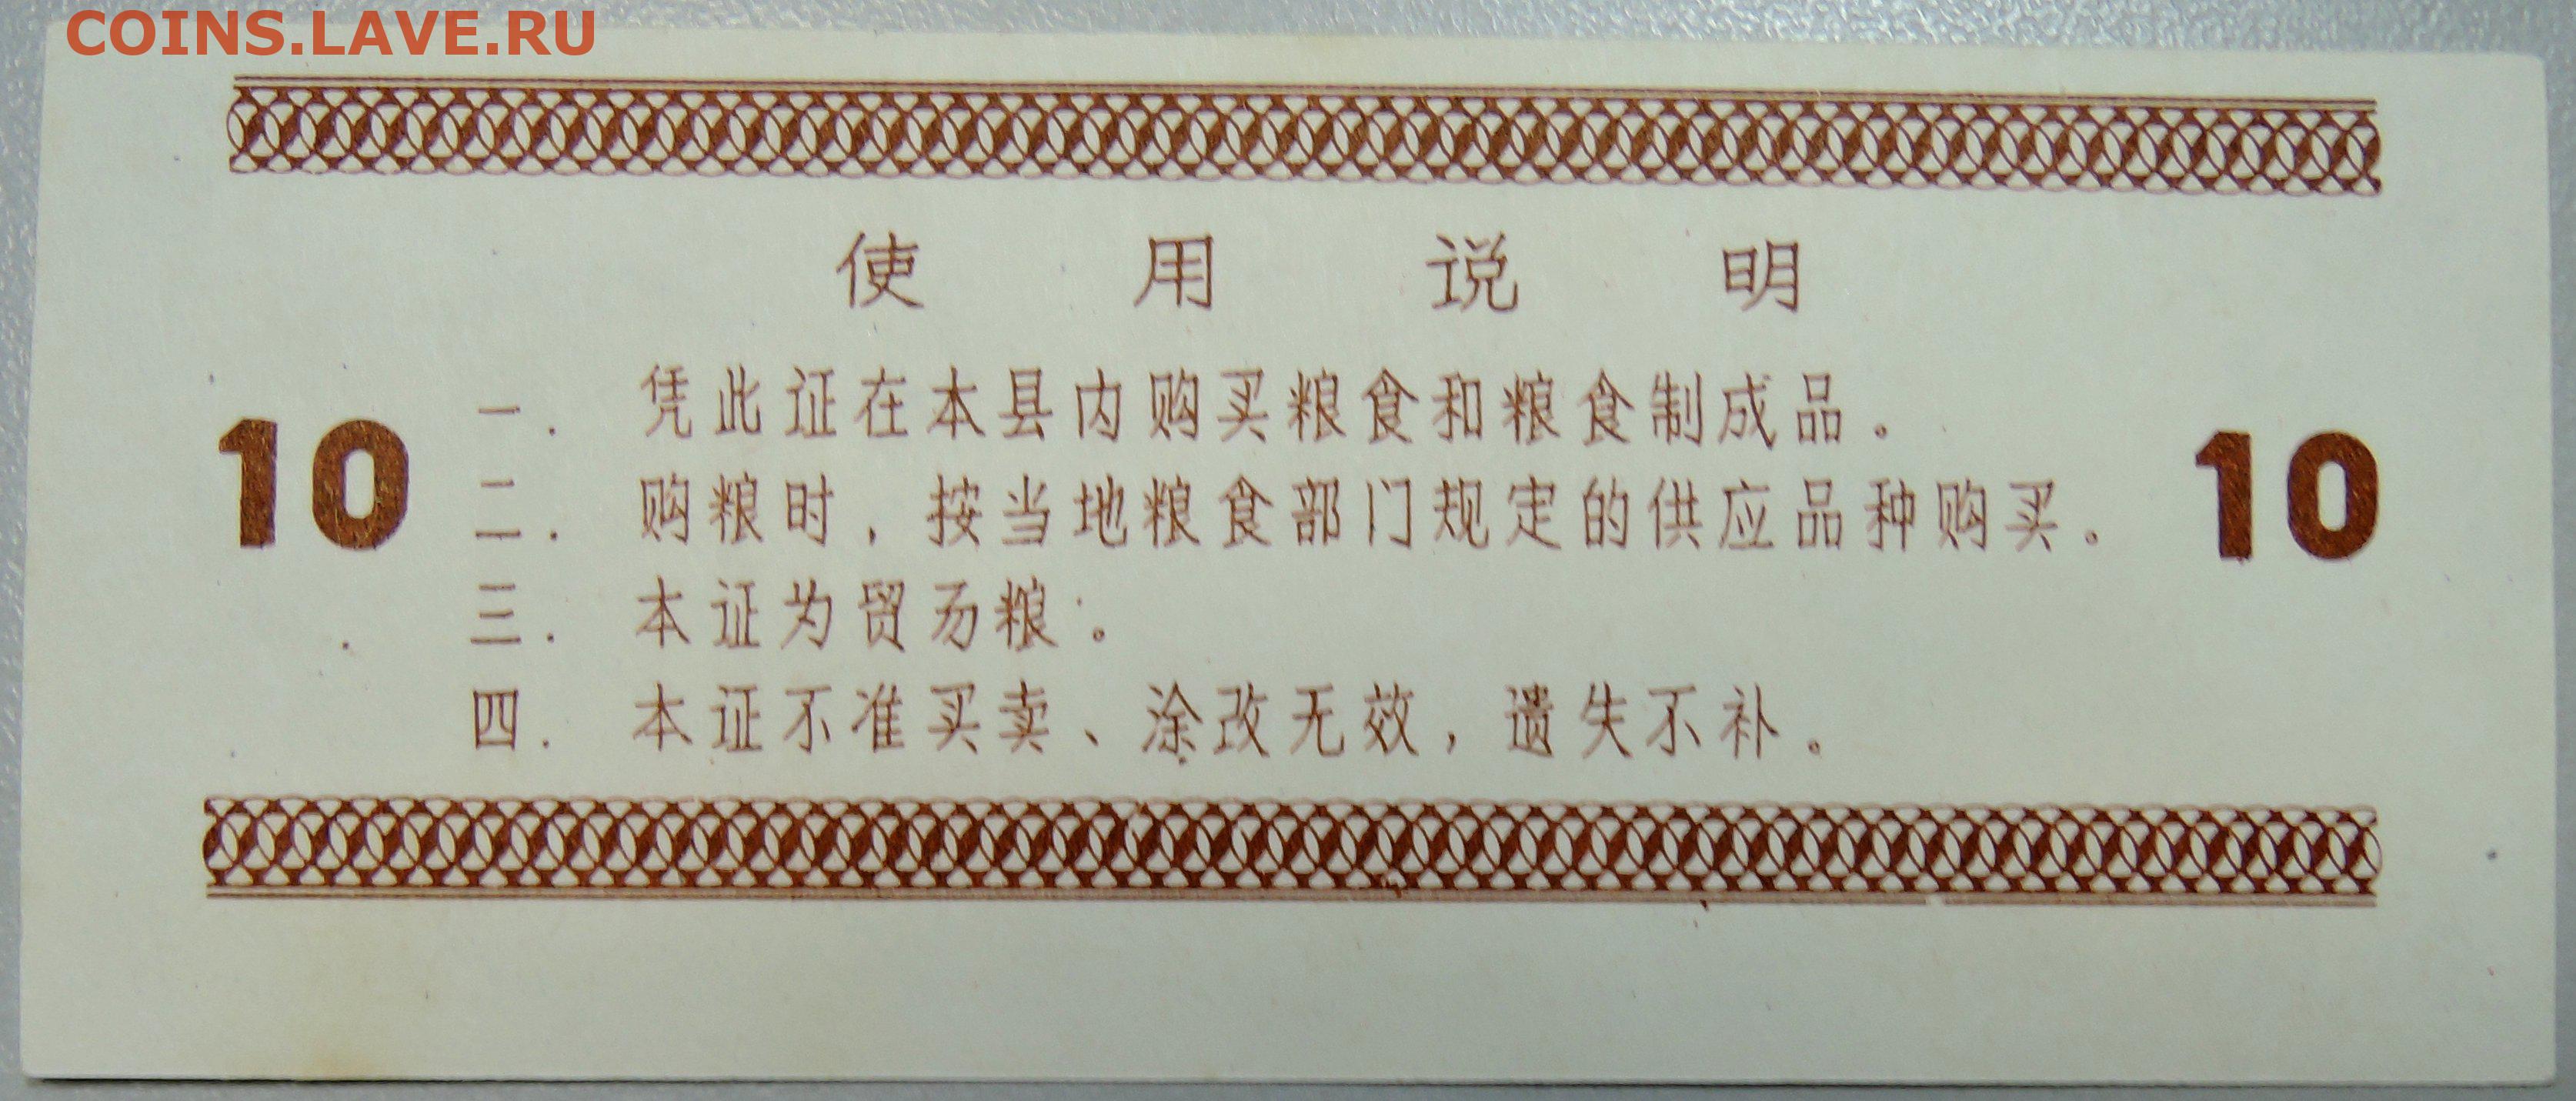 COINS.LAVE.RU
使用说明
一. 凭此证在本县内购买粮食和粮食制成品。
10 二. 购粮时，按当地粮食部门规定的供应品种购买。 10
三. 本证为贸易粮。
四. 本证不准买卖、涂改无效，遗失不补。